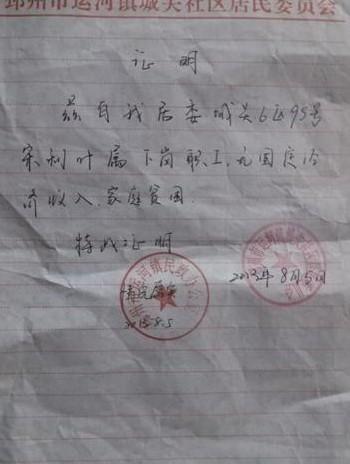 邳州市运河镇城关社区居民委员会
证明
兹有我居委城关6区95号
宋利叶属下岗职工,无固定经
济收入,家庭贫困.
特此证明
2013年8月5日
情况属实
2013.8.5